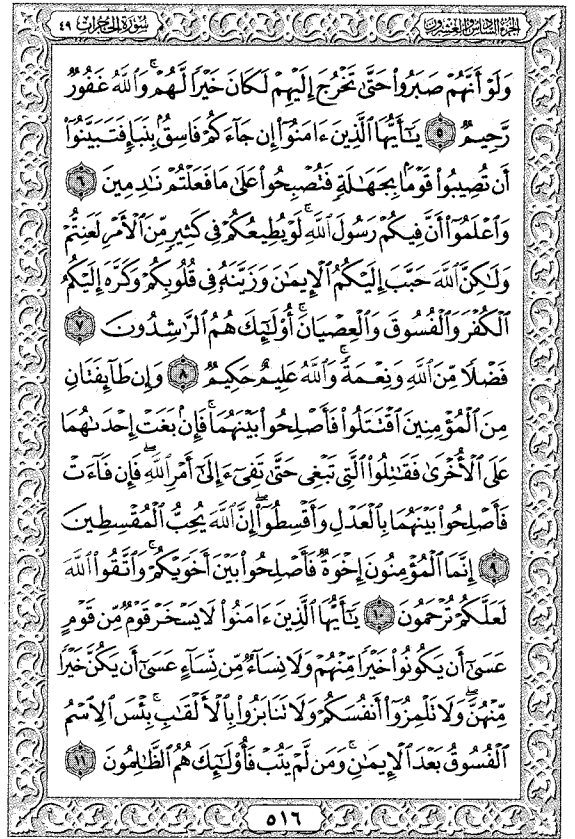 سُورَةُ الحُجُرَاتِ ٤٩
الجُزْءُ السَّادِسُ وَالعِشْرُونَ
وَلَوْ أَنَّهُمْ صَبَرُوا۟ حَتَّىٰ تَخْرُجَ إِلَيْهِمْ لَكَانَ خَيْرًا لَّهُمْ ۚ وَٱللَّهُ غَفُورٌ
رَّحِيمٌ ٥ يَـٰٓأَيُّهَا ٱلَّذِينَ ءَامَنُوٓا۟ إِن جَآءَكُمْ فَاسِقٌۢ بِنَبَإٍ فَتَبَيَّنُوٓا۟
أَن تُصِيبُوا۟ قَوْمًۢا بِجَهَـٰلَةٍ فَتُصْبِحُوا۟ عَلَىٰ مَا فَعَلْتُمْ نَـٰدِمِينَ ٦
وَٱعْلَمُوٓا۟ أَنَّ فِيكُمْ رَسُولَ ٱللَّهِ ۚ لَوْ يُطِيعُكُمْ فِى كَثِيرٍ مِّنَ ٱلْأَمْرِ لَعَنِتُّمْ
وَلَـٰكِنَّ ٱللَّهَ حَبَّبَ إِلَيْكُمُ ٱلْإِيمَـٰنَ وَزَيَّنَهُۥ فِى قُلُوبِكُمْ وَكَرَّهَ إِلَيْكُمُ
ٱلْكُفْرَ وَٱلْفُسُوقَ وَٱلْعِصْيَانَ ۚ أُو۟لَـٰٓئِكَ هُمُ ٱلرَّٰشِدُونَ ٧
فَضْلًا مِّنَ ٱللَّهِ وَنِعْمَةً ۚ وَٱللَّهُ عَلِيمٌ حَكِيمٌ ٨ وَإِن طَآئِفَتَانِ
مِنَ ٱلْمُؤْمِنِينَ ٱقْتَتَلُوا۟ فَأَصْلِحُوا۟ بَيْنَهُمَا ۖ فَإِنۢ بَغَتْ إِحْدَىٰهُمَا
عَلَى ٱلْأُخْرَىٰ فَقَـٰتِلُوا۟ ٱلَّتِى تَبْغِى حَتَّىٰ تَفِىٓءَ إِلَىٰٓ أَمْرِ ٱللَّهِ ۚ فَإِن فَآءَتْ
فَأَصْلِحُوا۟ بَيْنَهُمَا بِٱلْعَدْلِ وَأَقْسِطُوٓا۟ ۖ إِنَّ ٱللَّهَ يُحِبُّ ٱلْمُقْسِطِينَ
٩ إِنَّمَا ٱلْمُؤْمِنُونَ إِخْوَةٌ فَأَصْلِحُوا۟ بَيْنَ أَخَوَيْكُمْ ۚ وَٱتَّقُوا۟ ٱللَّهَ
لَعَلَّكُمْ تُرْحَمُونَ ١٠ يَـٰٓأَيُّهَا ٱلَّذِينَ ءَامَنُوا۟ لَا يَسْخَرْ قَوْمٌ مِّن قَوْمٍ
عَسَىٰٓ أَن يَكُونُوا۟ خَيْرًا مِّنْهُمْ وَلَا نِسَآءٌ مِّن نِّسَآءٍ عَسَىٰٓ أَن يَكُنَّ خَيْرًا
مِّنْهُنَّ ۖ وَلَا تَلْمِزُوٓا۟ أَنفُسَكُمْ وَلَا تَنَابَزُوا۟ بِٱلْأَلْقَـٰبِ ۖ بِئْسَ ٱلِٱسْمُ
ٱلْفُسُوقُ بَعْدَ ٱلْإِيمَـٰنِ ۚ وَمَن لَّمْ يَتُبْ فَأُو۟لَـٰٓئِكَ هُمُ ٱلظَّـٰلِمُونَ ١١
٥١٦